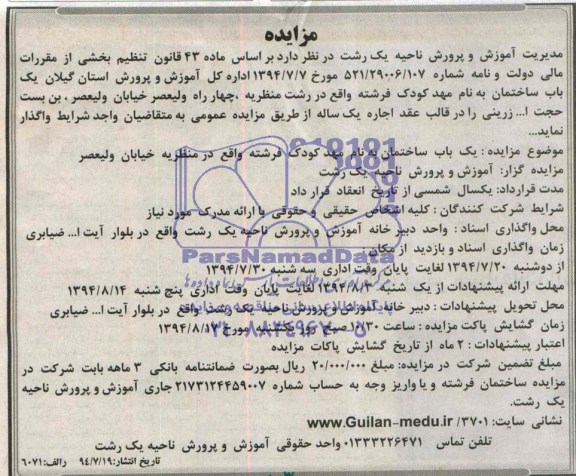 مزایده
مدیریت آموزش و پرورش ناحیه یک رشت در نظر دارد بر اساس ماده ۴۳ قانون تنظیم بخشی از مقررات
مالی دولت و نامه شماره ۵۲۱/۲۹۰۰۶/۱۰۷ مورخ ۱۳۹۴/۷/۷ اداره کل آموزش و پرورش استان گیلان یک
باب ساختمان به نام مهد کودک فرشته واقع در رشت منظریه ،چهار راه ولیعصر خیابان ولیعصر ، بن بست
حجت ا... زرینی را در قالب عقد اجاره یک ساله از طریق مزایده عمومی به متقاضیان واجد شرایط واگذار
نماید...
موضوع مزایده : یک باب ساختمان به نام مهد کودک فرشته واقع در منظریه خیابان ولیعصر
مزایده گزار: آموزش و پرورش ناحیه یک رشت
مدت قرارداد: یکسال شمسی از تاریخ انعقاد قرار داد
شرایط شرکت کنندگان : کلیه اشخاص حقیقی و حقوقی با ارائه مدرک مورد نیاز
محل واگذاری اسناد : واحد دبیر خانه آموزش و پرورش ناحیه یک رشت واقع در بلوار آیت ا... ضیابری
زمان واگذاری اسناد و بازدید از مکان :
از دوشنبه ۱۳۹۴/۷/۲۰ لغایت پایان وقت اداری سه شنبه ۱۳۹۴/۷/۳۰
مهلت ارائه پیشنهادات از یک شنبه ۱۳۹۴/۸/۳ لغایت پایان وقت اداری پنج شنبه ۱۳۹۴/۸/۱۴
محل تحویل پیشنهادات : دبیر خانه آموزش و پرورش ناحیه یک رشت واقع در بلوار آیت ا... ضیابری
زمان گشایش پاکت مزایده : ساعت ۱۱/۳۰ صبح روز یکشنبه مورخ ۱۳۹۴/۸/۱۷
اعتبار پیشنهادات : ۲ ماه از تاریخ گشایش پاکات مزایده
مبلغ تضمین شرکت در مزایده: مبلغ ۲۰/۰۰۰/۰۰۰ ریال بصورت ضمانتنامه بانکی ۳ ماهه بابت شرکت در
مزایده ساختمان فرشته و یا واریز وجه به حساب شماره ۲۱۷۳۱۲۴۴۵۹۰۰۷ جاری آموزش و پرورش ناحیه
یک رشت.
نشانی سایت: www.Guilan-medu.ir /۳۷۰۱
تلفن تماس ۰۱۳۳۳۲۲۶۴۷۱ واحد حقوقی آموزش و پرورش ناحیه یک رشت
تاریخ انتشار: ۹۴/۷/۱۹ رالف: ۶۰۷۱
ParsNamadData